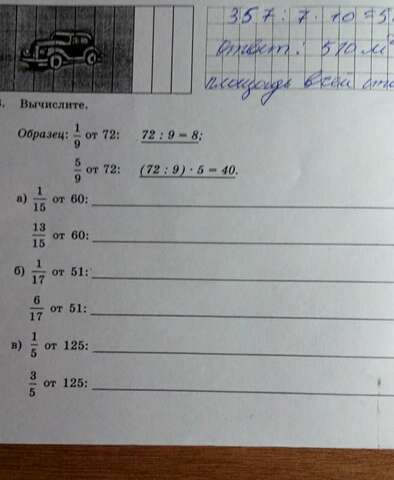 357 : 7 · 10 = 5
ответ: 510 м
площадь всей
Вычислите.
Образец: 1/9 от 72: 72 : 9 = 8;
5/9 от 72: (72 : 9) · 5 = 40.
а) 1/15 от 60:
13/15 от 60:
б) 1/17 от 51:
6/17 от 51:
в) 1/5 от 125:
3/5 от 125: